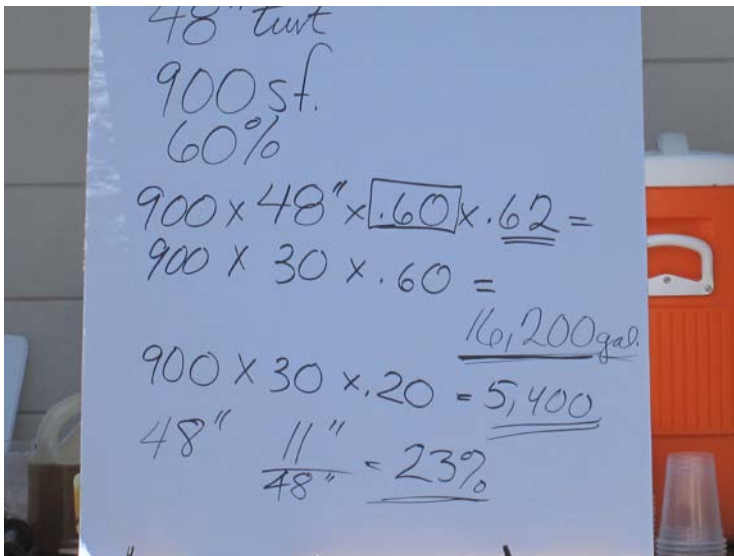 48" turf
900 sf.
60%
900 x 48" x .60 x .62 =
900 x 30 x .60 =
16,200 gal.
900 x 30 x .20 = 5,400
48" 11"/48" = 23%